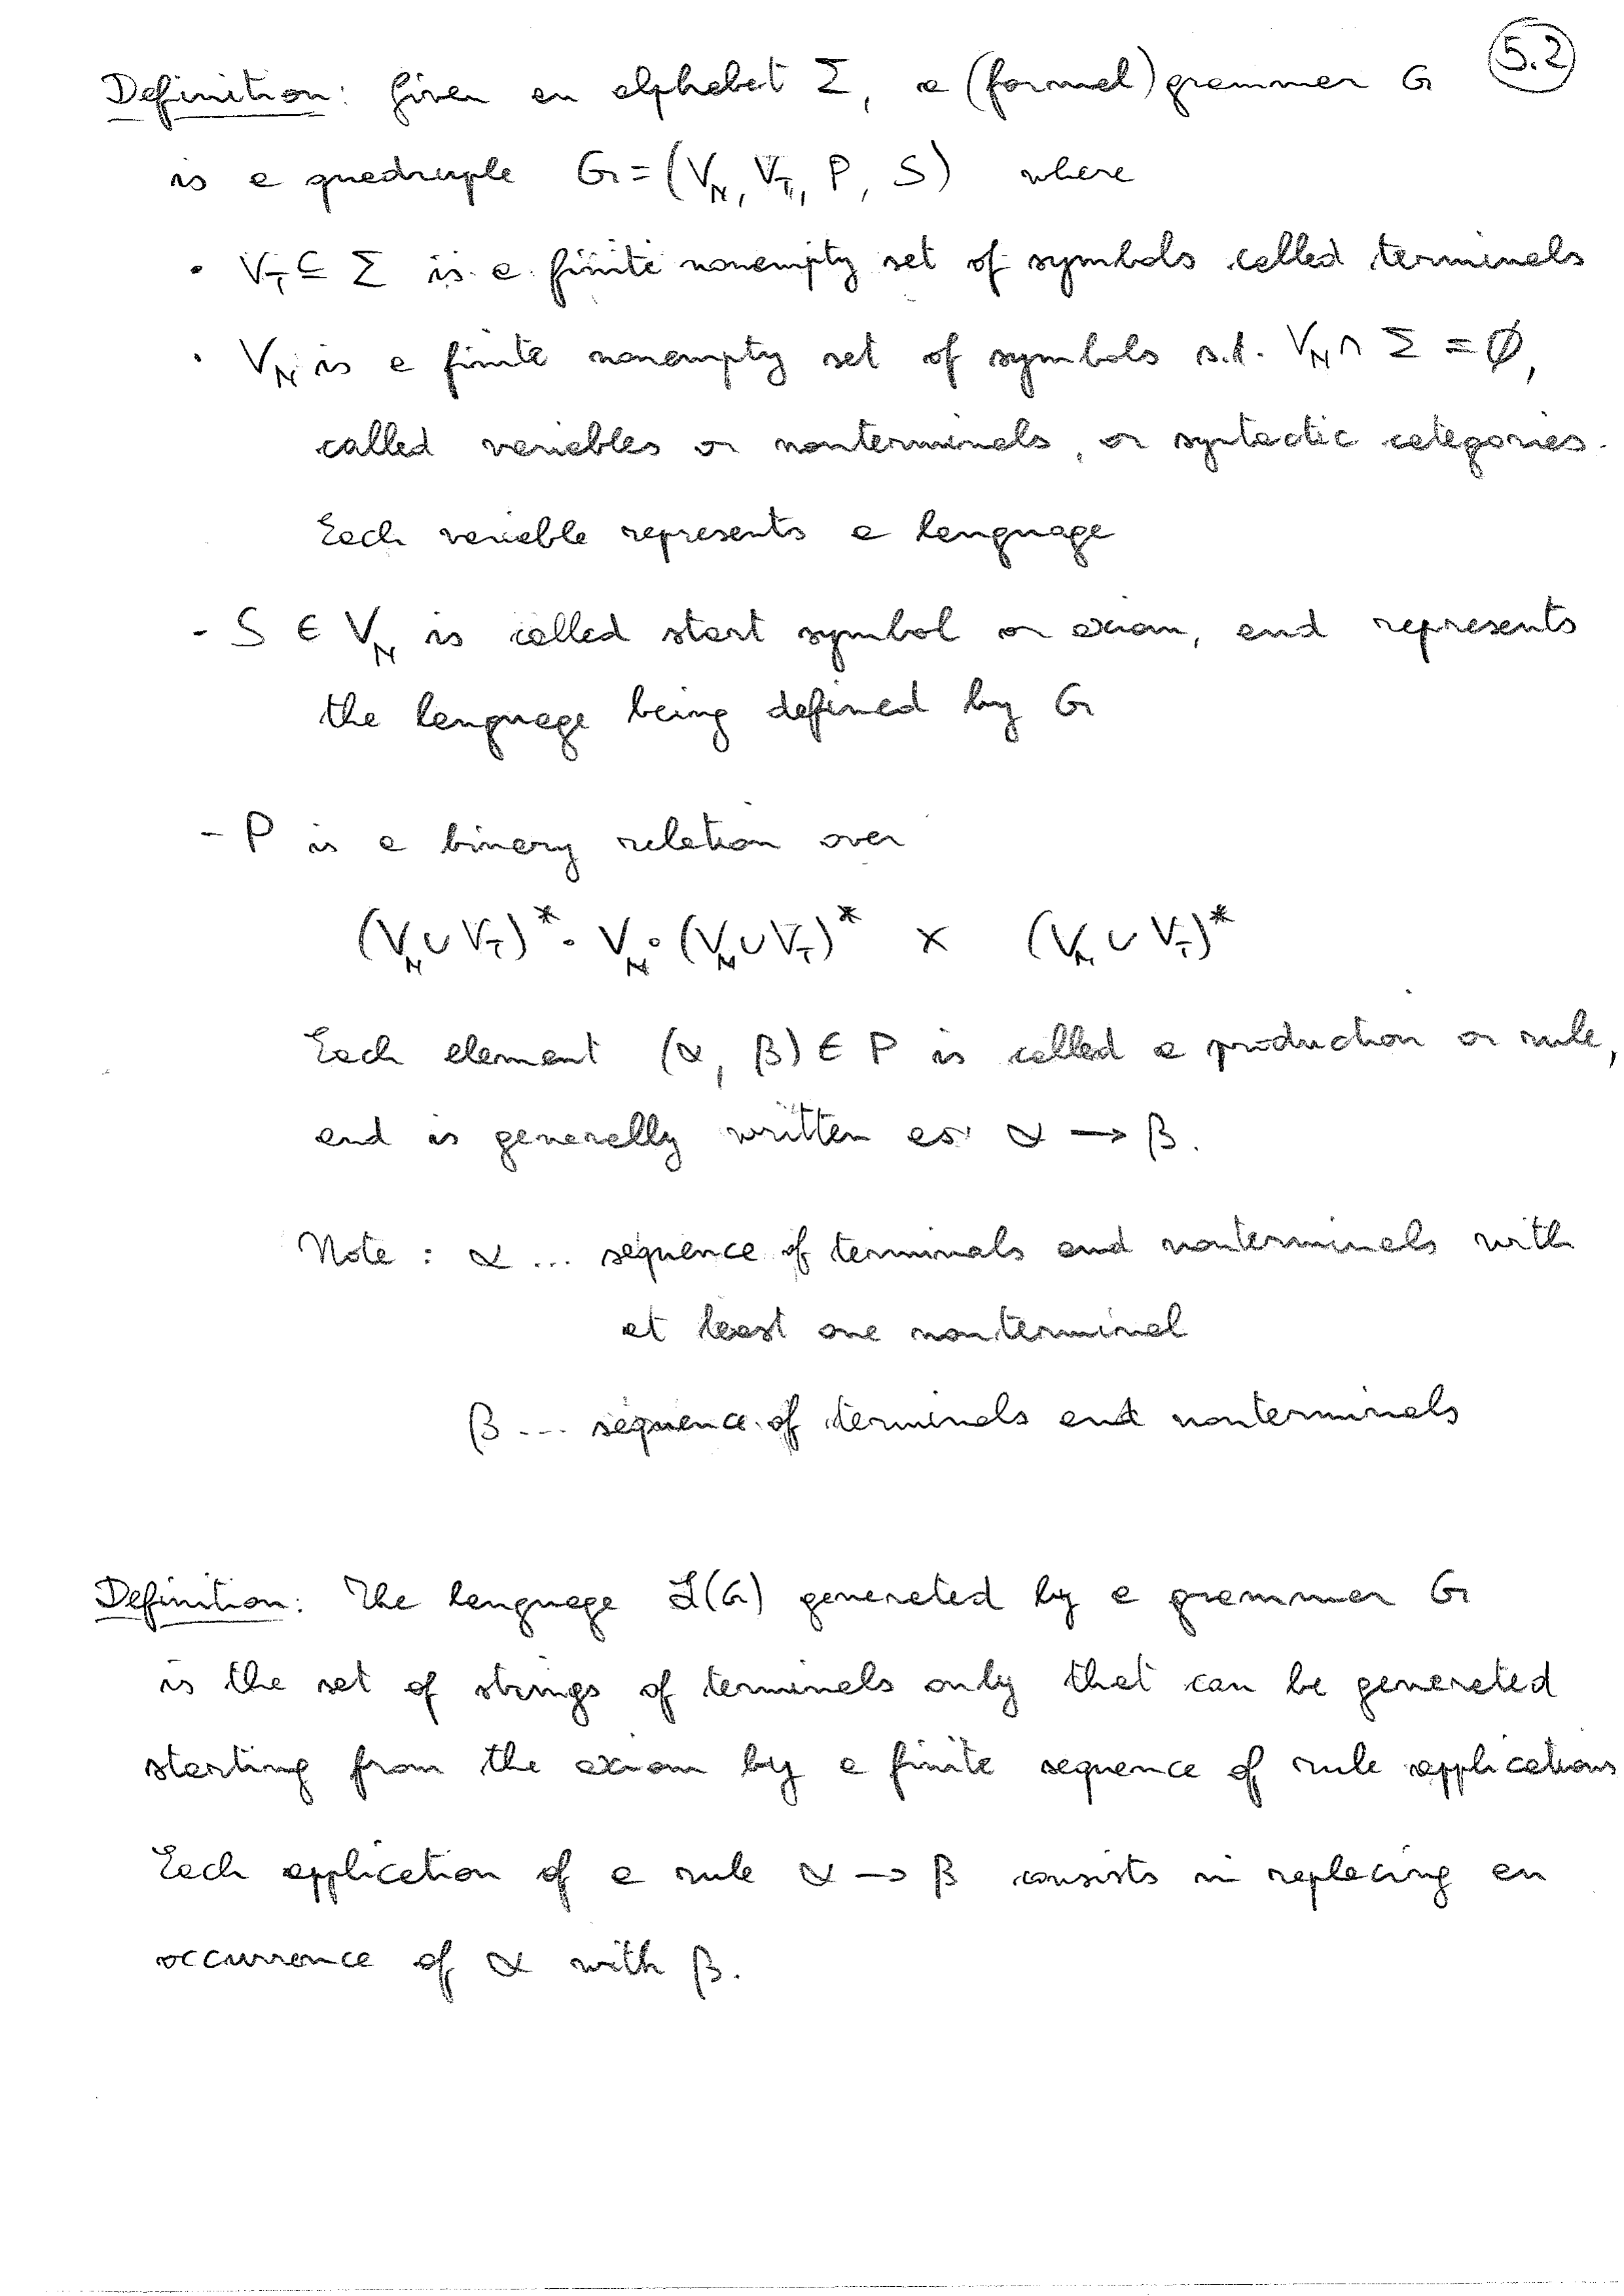 5.2
Definition: Given an alphabet Σ, a (formal) grammar G
is a quadruple G = (V_N, V_T, P, S) where
• V_T ⊆ Σ is a finite nonempty set of symbols called terminals
• V_N is a finite nonempty set of symbols s.t. V_N ∩ Σ = ∅,
called variables or nonterminals, or syntactic categories.
Each variable represents a language
- S ∈ V_N is called start symbol or axiom, and represents
the language being defined by G
- P is a binary relation over
(V_N ∪ V_T)* ∘ V_N ∘ (V_N ∪ V_T)* × (V_N ∪ V_T)*
Each element (α, β) ∈ P is called a production or rule,
and is generally written as α → β.
Note : α ... sequence of terminals and nonterminals with
at least one nonterminal
β ... sequence of terminals and nonterminals
Definition: The language ℒ(G) generated by a grammar G
is the set of strings of terminals only that can be generated
starting from the axiom by a finite sequence of rule applications
Each application of a rule α → β consists in replacing an
occurrence of α with β.